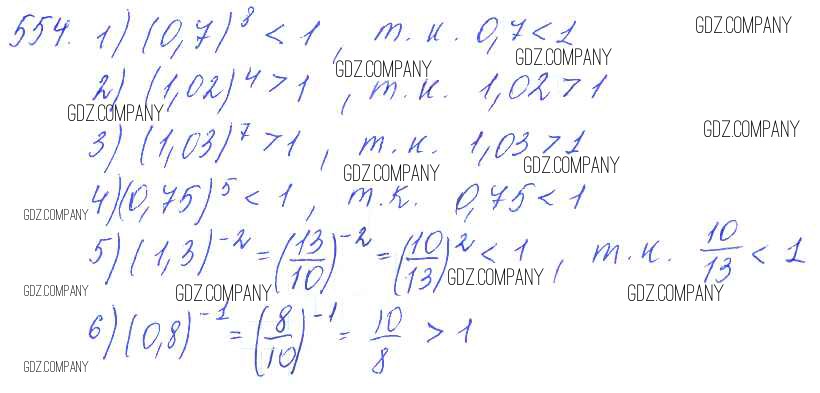 554. 1) (0,7)^8 < 1, т.к. 0,7 < 1 GDZ.COMPANY
GDZ.COMPANY GDZ.COMPANY
2) (1,02)^4 > 1, т.к. 1,02 > 1
GDZ.COMPANY
3) (1,03)^7 > 1, т.к. 1,03 > 1 GDZ.COMPANY
GDZ.COMPANY GDZ.COMPANY
4) (0,75)^5 < 1, т.к. 0,75 < 1
GDZ.COMPANY
5) (1,3)^{-2} = (13/10)^{-2} = (10/13)^2 < 1, т.к. 10/13 < 1
GDZ.COMPANY
GDZ.COMPANY GDZ.COMPANY GDZ.COMPANY
6) (0,8)^{-1} = (8/10)^{-1} = 10/8 > 1
GDZ.COMPANY